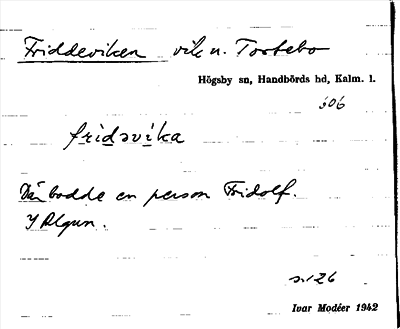 Friddeviken vik u. Torsebo
Högsby sn, Handbörds hd, Kalm. l.
606
fridəvika
Där bodde en person Fridolf.
I Algun.
s. 126
Ivar Modéer 1942